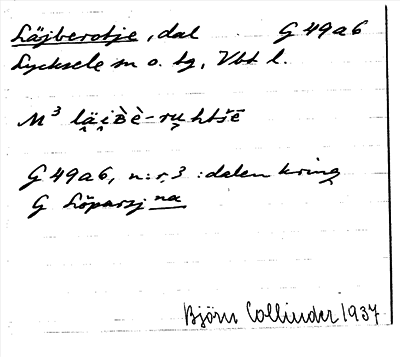 Läjberotje, dal G 49a6
Lycksele sn o. tg, Vbt l.
M³ lä̭i̭ʙὲ̀-ru̬htšē
G 49a6, n:r 3 : dalen kring
G Löparsjna
Björn Collinder 1937